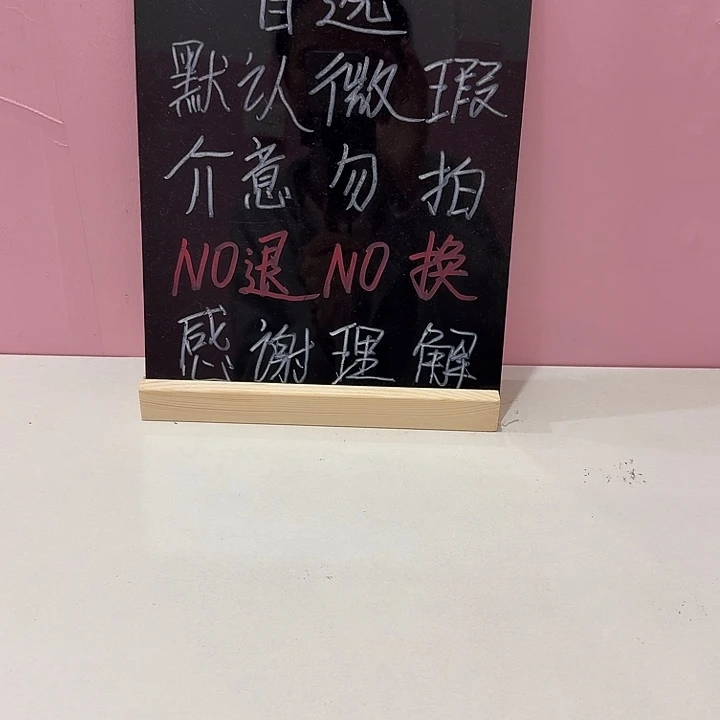 自选
默认微瑕
介意勿拍
NO退NO换
感谢理解